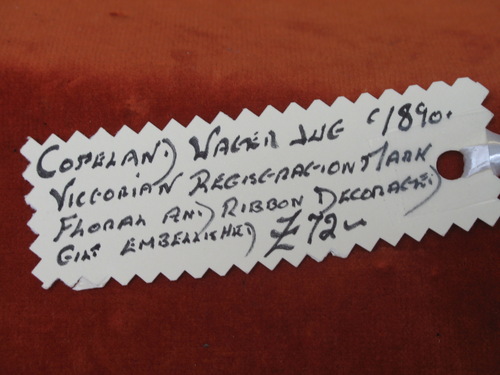 COPELAND WATER JUG C1890.
VICTORIAN REGISTRATION MARK
FLORAL AND RIBBON DECORATED
GILT EMBELLISHED £72~